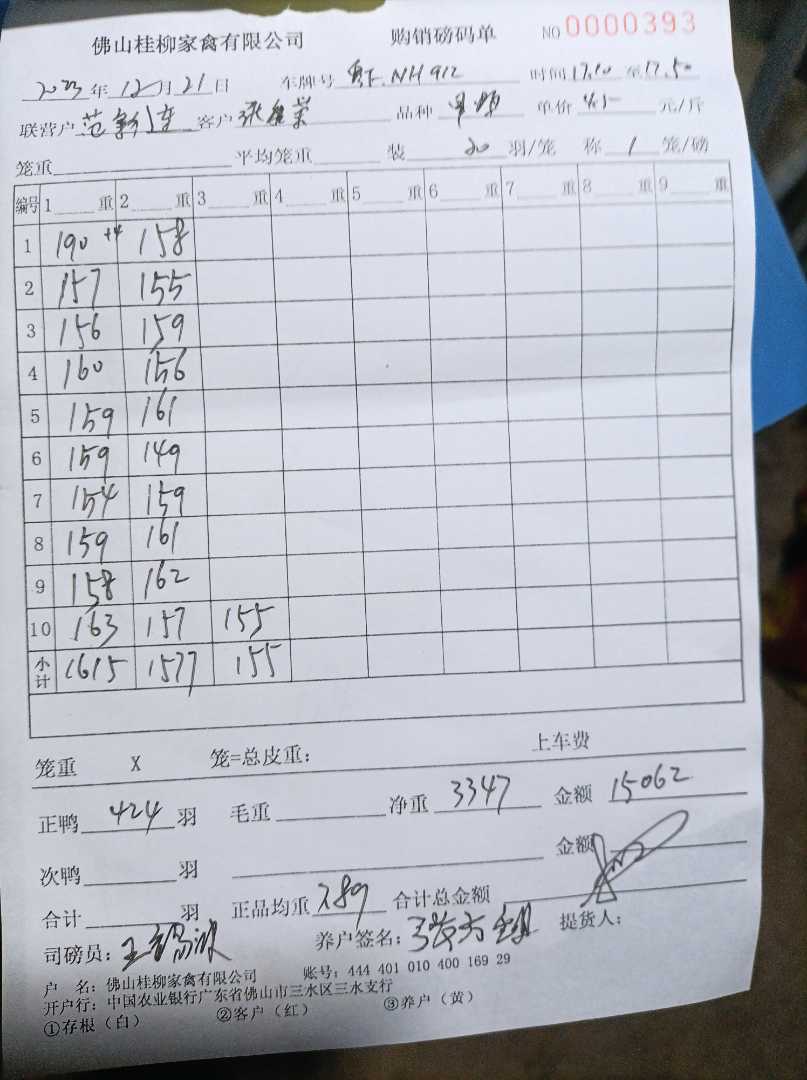 佛山桂柳家禽有限公司 购销磅码单 NO 0000393
2023年12月21日 车牌号 NH912 时间 17.10 至 17.50
联营户 范 客户 张 品种 单价 4.5 元/斤
笼重 平均笼重 装 20 羽/笼 称 1 笼/磅
编号 1 重 2 重 3 重 4 重 5 重 6 重 7 重 8 重 9 重
1 190 +4 158
2 157 155
3 156 159
4 160 156
5 159 161
6 159 149
7 154 159
8 159 161
9 158 162
10 163 157 155
小计 1615 1577 155
笼重 X 笼=总皮重: 上车费
正鸭 424 羽 毛重 净重 3347 金额 15062
次鸭 羽 金额
合计 羽 正品均重 7.89 合计总金额
司磅员: 王 养户签名: 提货人:
户 名: 佛山桂柳家禽有限公司 账号: 444 401 010 400 169 29
开户行: 中国农业银行广东省佛山市三水区三水支行
①存根（白） ②客户（红） ③养户（黄）